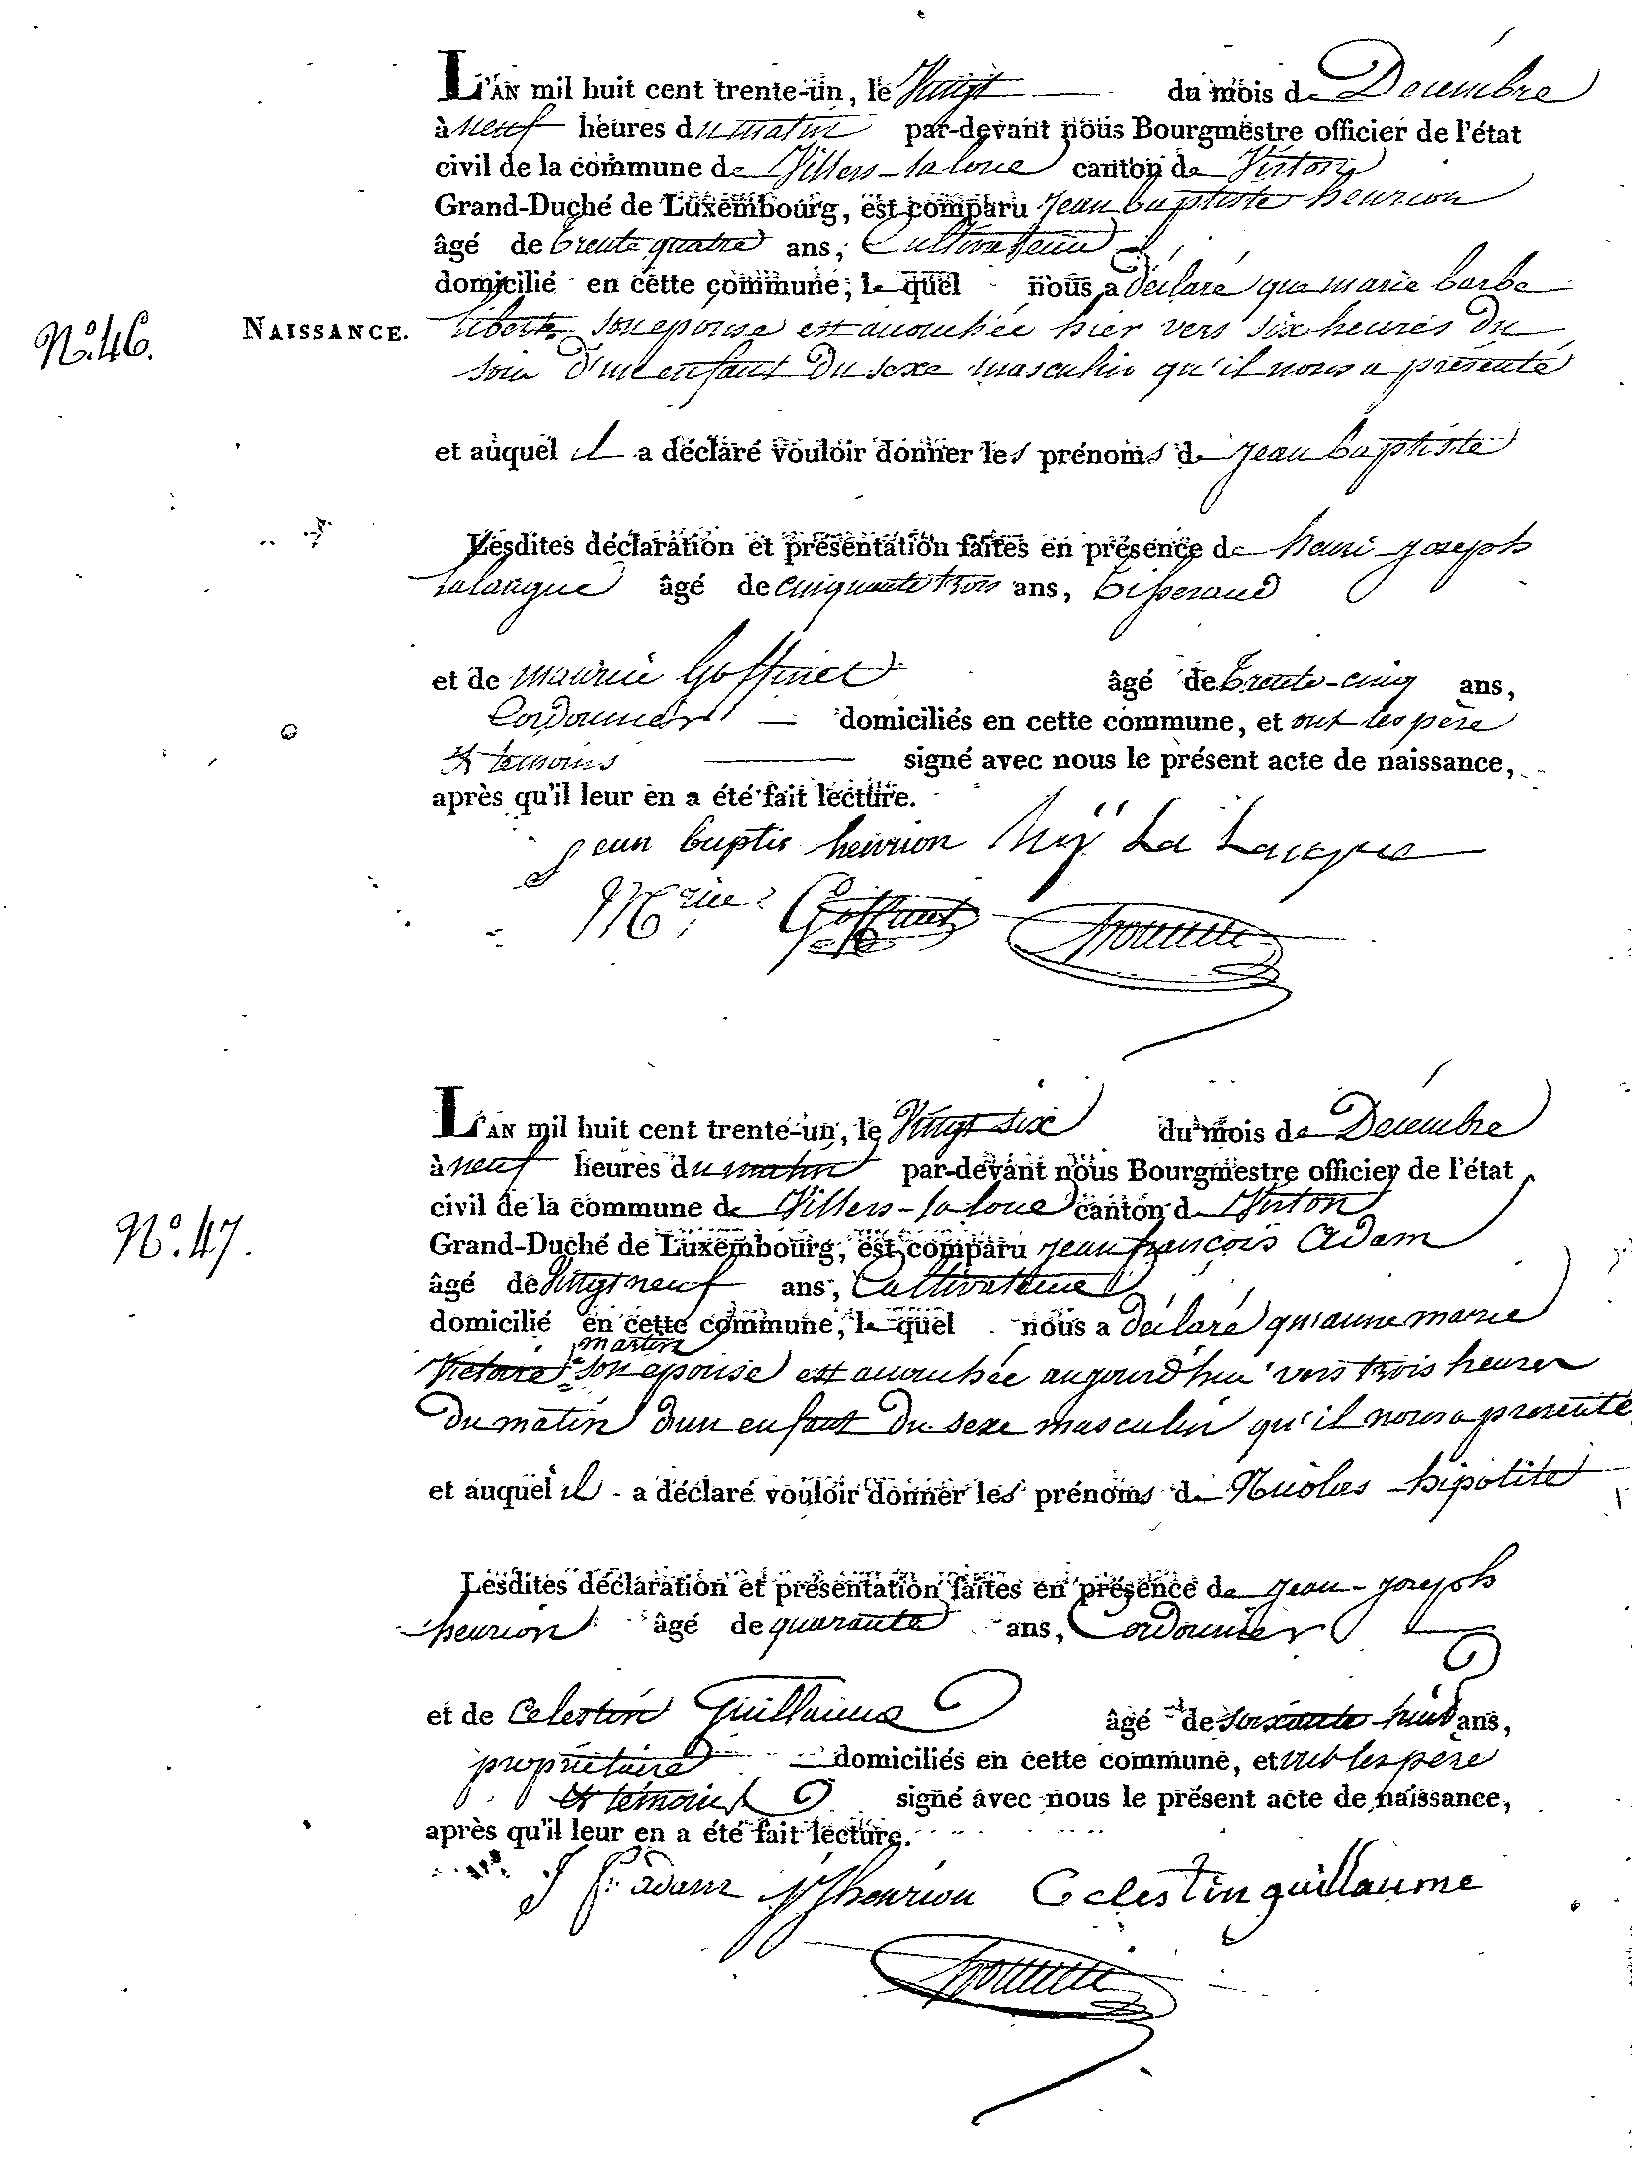 L'AN mil huit cent trente-un, le Vingt du mois de Décembre
à neuf heures du matin par-devant nous Bourgmestre officier de l'état
civil de la commune de Villers-la loue canton de Virton
Grand-Duché de Luxembourg, est comparu jean baptiste henrion
âgé de trente quatre ans, Cultivateur
domicilié en cette commune, lequel nous a déclaré que marie barbe
N.º 46. NAISSANCE. liberte son epouse est accouchée hier vers six heures du
soir d'un enfant du sexe masculin qu'il nous a présenté
et auquel il a déclaré vouloir donner les prénoms de jean baptiste
Lesdites déclaration et présentation faites en présence de henri joseph
lalangue âgé de cinquante trois ans, tisserand
et de maurice Goffinet âgé de trente-cinq ans,
Cordonnier domiciliés en cette commune, et ont les père
et temoins signé avec nous le présent acte de naissance,
après qu'il leur en a été fait lecture.
jean baptis henrion hrij La Langue
Mrice Goffinet
L'AN mil huit cent trente-un, le Vingt six du mois de Décembre
à neuf heures du matin par-devant nous Bourgmestre officier de l'état
N.º 47. civil de la commune de Villers-la loue canton de Virton
Grand-Duché de Luxembourg, est comparu jean françois Adam
âgé de Vingt neuf ans, Cultivateur
domicilié en cette commune, lequel nous a déclaré qu'anne marie
martin
Victoire son epouse est accouchée aujourd'hui vers trois heures
du matin d'un enfant du sexe masculin qu'il nous a presenté
et auquel il a déclaré vouloir donner les prénoms de Nicolas hipolite
Lesdites déclaration et présentation faites en présence de jean-joseph
henrion âgé de quarante ans, Cordonnier
et de Celestin Guillaume âgé de soixante huit ans,
propriétaire domiciliés en cette commune, et ont les père
et témoins signé avec nous le présent acte de naissance,
après qu'il leur en a été fait lecture.
J fr adam jj henrion Celestin guillaume